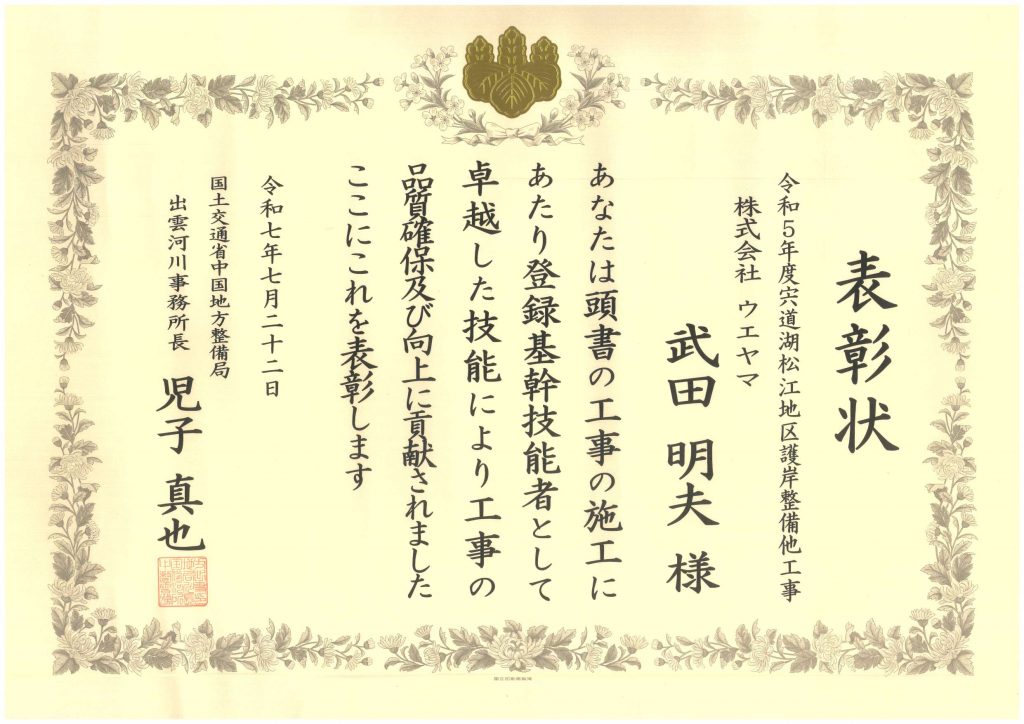 表彰状
令和５年度宍道湖松江地区護岸整備他工事
株式会社 ウエヤマ
武田 明夫 様
あなたは頭書の工事の施工に
あたり登録基幹技能者として
卓越した技能により工事の
品質確保及び向上に貢献されました
ここにこれを表彰します
令和七年七月二十二日
国土交通省中国地方整備局
出雲河川事務所長 児子 真也